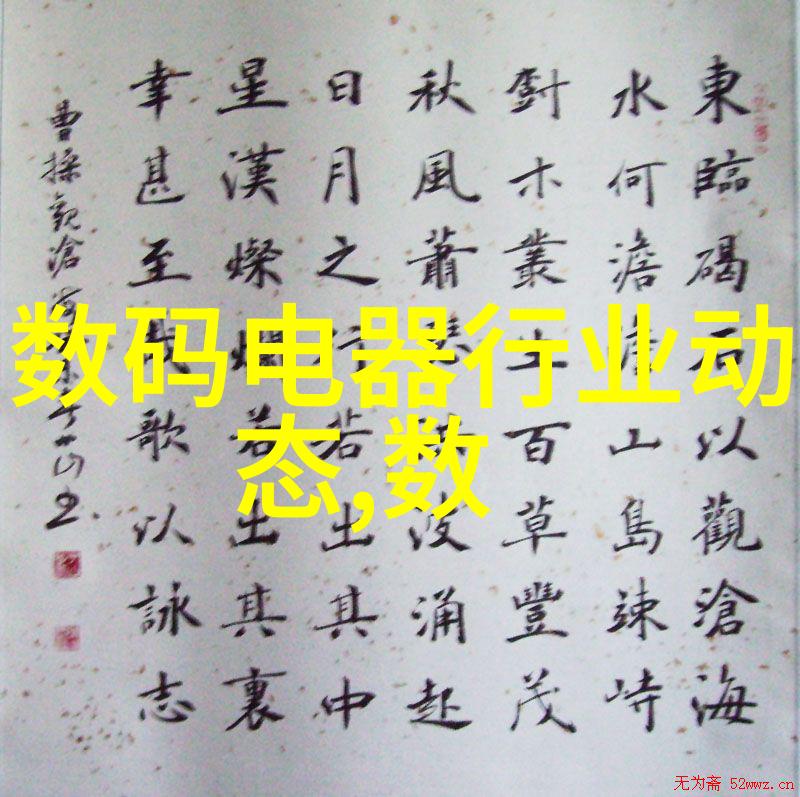 東臨碣石以觀滄海
水何澹澹山島竦峙
木叢生百草豐茂
秋風蕭瑟洪波涌起
日月之行若出其中
星漢燦爛若出其裏
幸甚至哉歌以詠志
曹操觀滄
数码电器行业动
态,数
无为斋 52wwz.cn